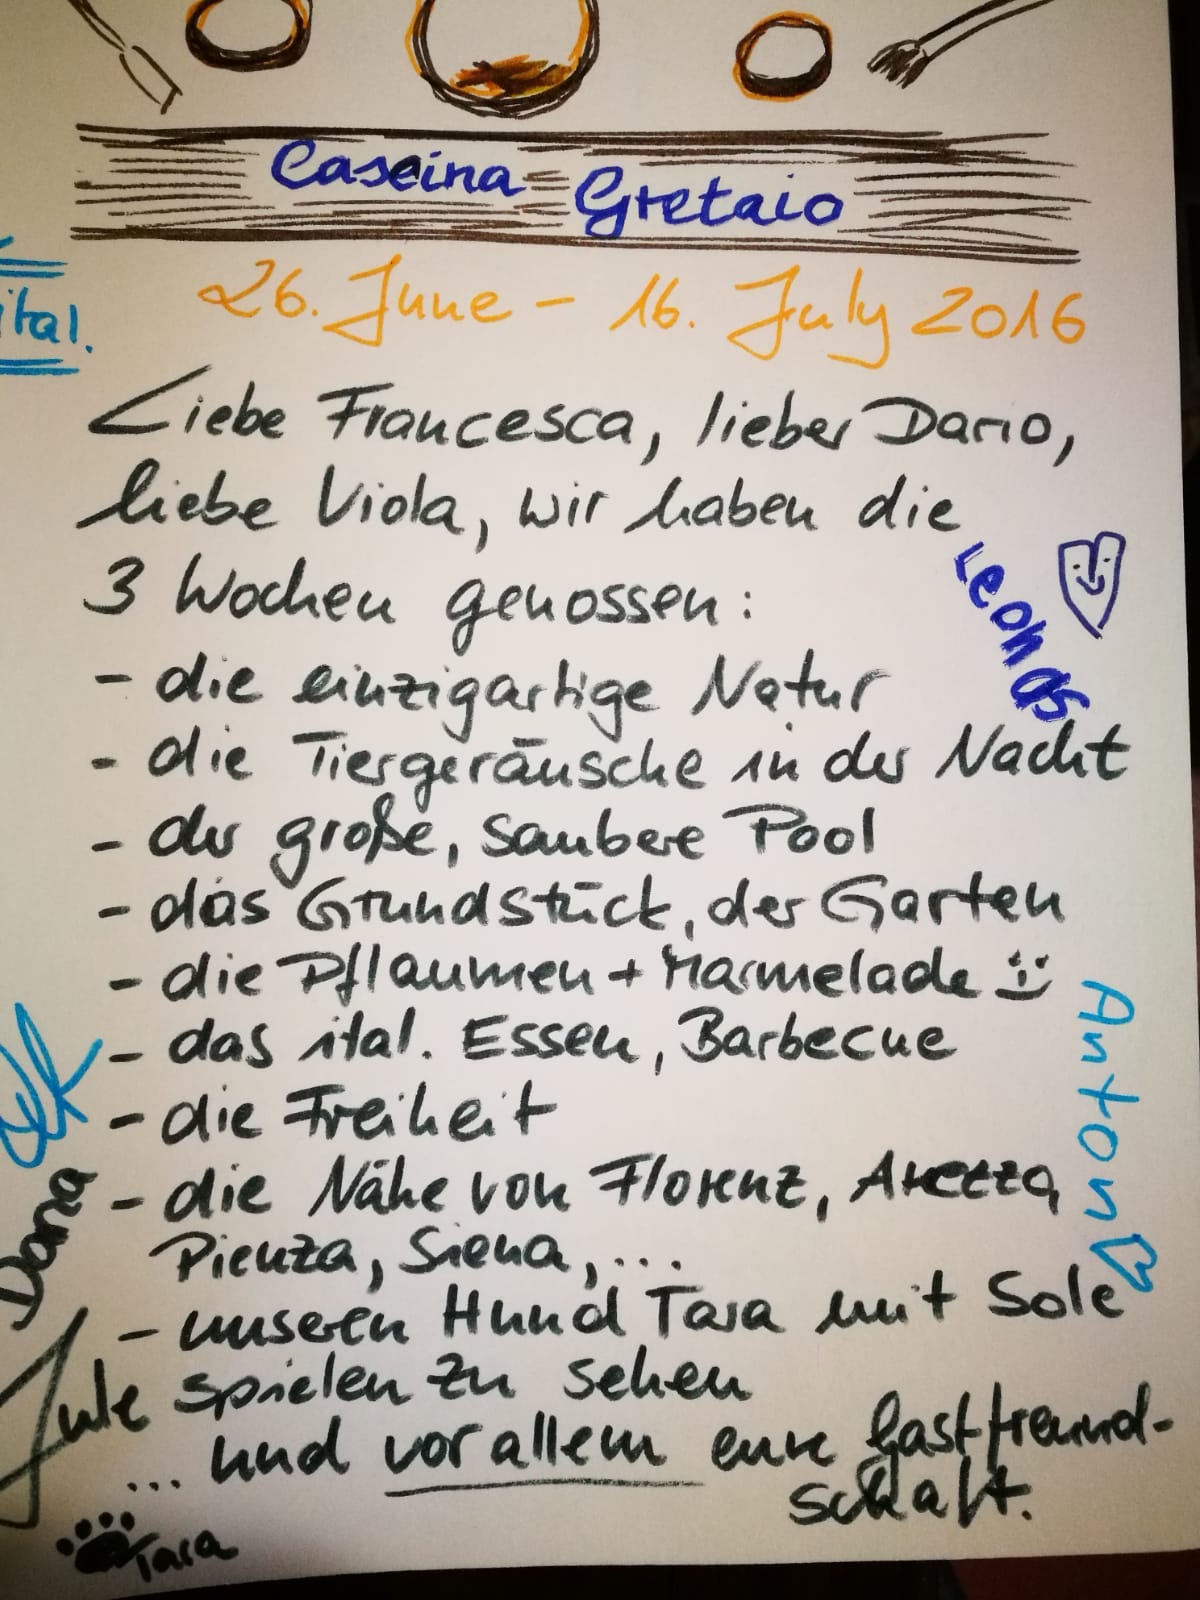 Cascina Gretaio
26. June - 16. July 2016
ital.
Liebe Francesca, lieber Dario,
liebe Viola, wir haben die
3 Wochen genossen:
Leonas
- die einzigartige Natur
- die Tiergeräusche in der Nacht
- der große, saubere Pool
- das Grundstück, der Garten
- die Pflaumen + Marmelade :)
- das ital. Essen, Barbecue
Anton
- die Freiheit
- die Nähe von Florenz, Arezzo,
Pienza, Siena, ...
Dana
- unseren Hund Tara mit Sole
spielen zu sehen
Jule
... und vor allem eure Gastfreund-
schaft.
Tara